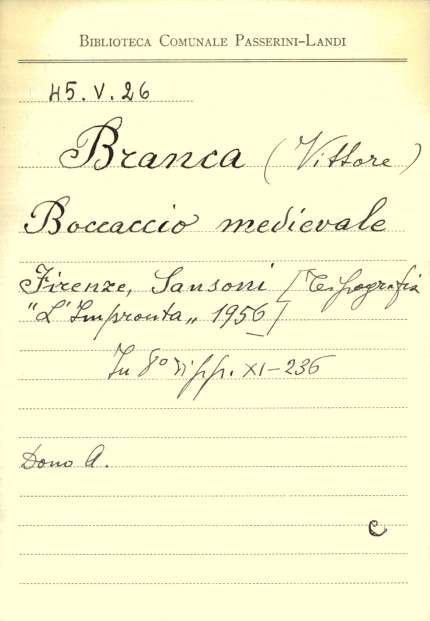 BIBLIOTECA COMUNALE PASSERINI-LANDI
45.V.26
Branca (Vittore)
Boccaccio medievale
Firenze, Sansoni [Tipografia
"L'Impronta„ 1956]
In 8° di pp. XI-236
Dono A.
C